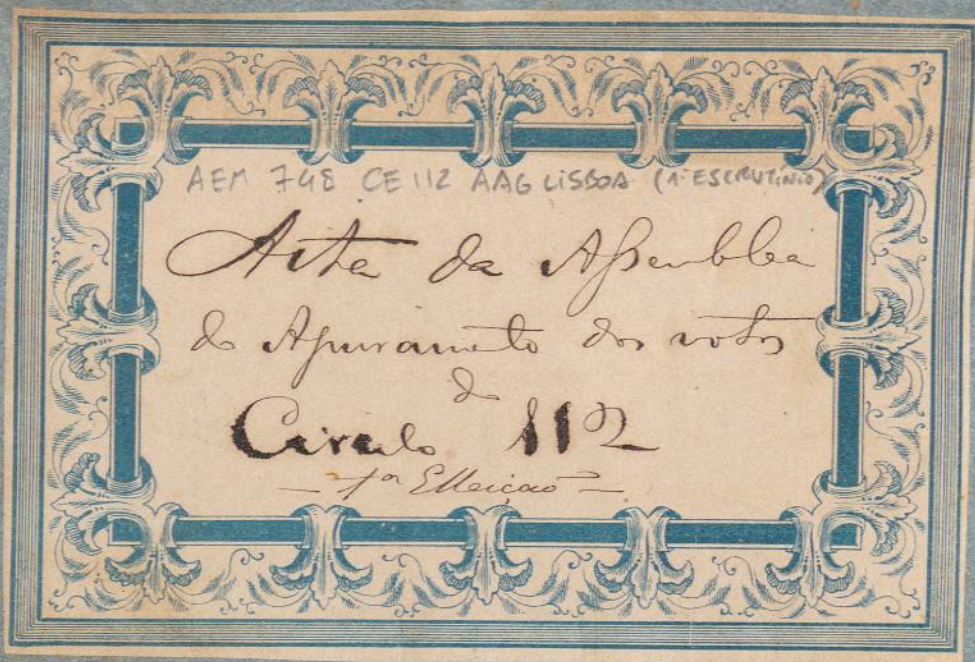 AEM 748 CE 112 AAG LISBOA (1º ESCRUTINIO)
Acta da Assemblea
de Apuramento dos votos
do
Circulo 112
— 1ª Elleição —